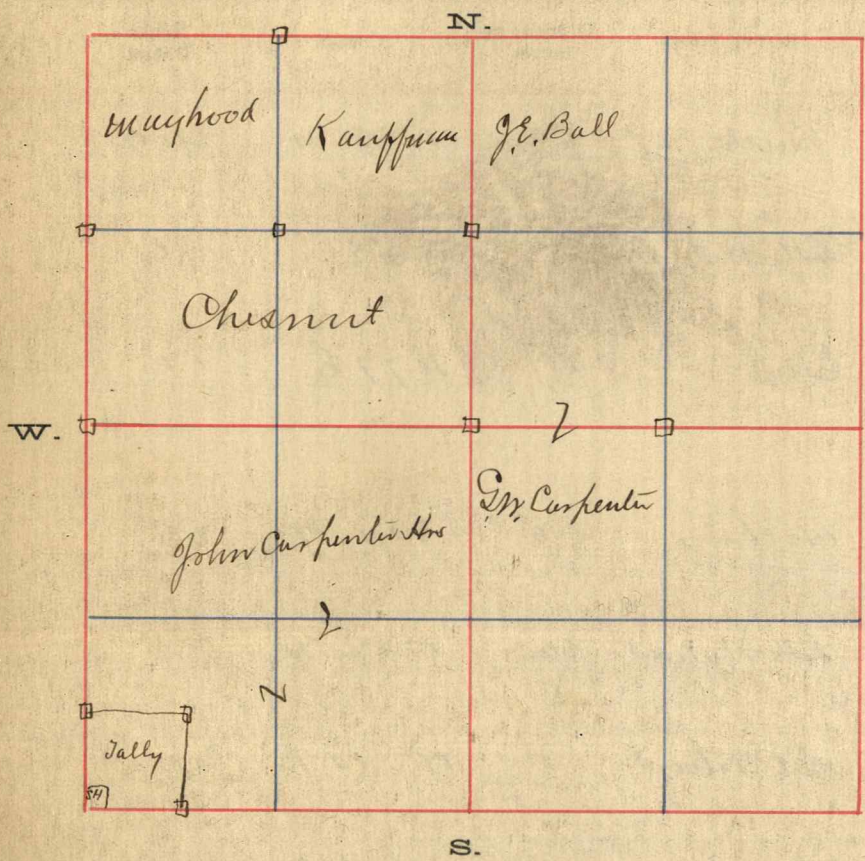 N.
Mayhood Kauffman J.E. Ball
Chesnut
W.
G.W. Carpenter
John Carpenter Hrs
Tally
SH
S.